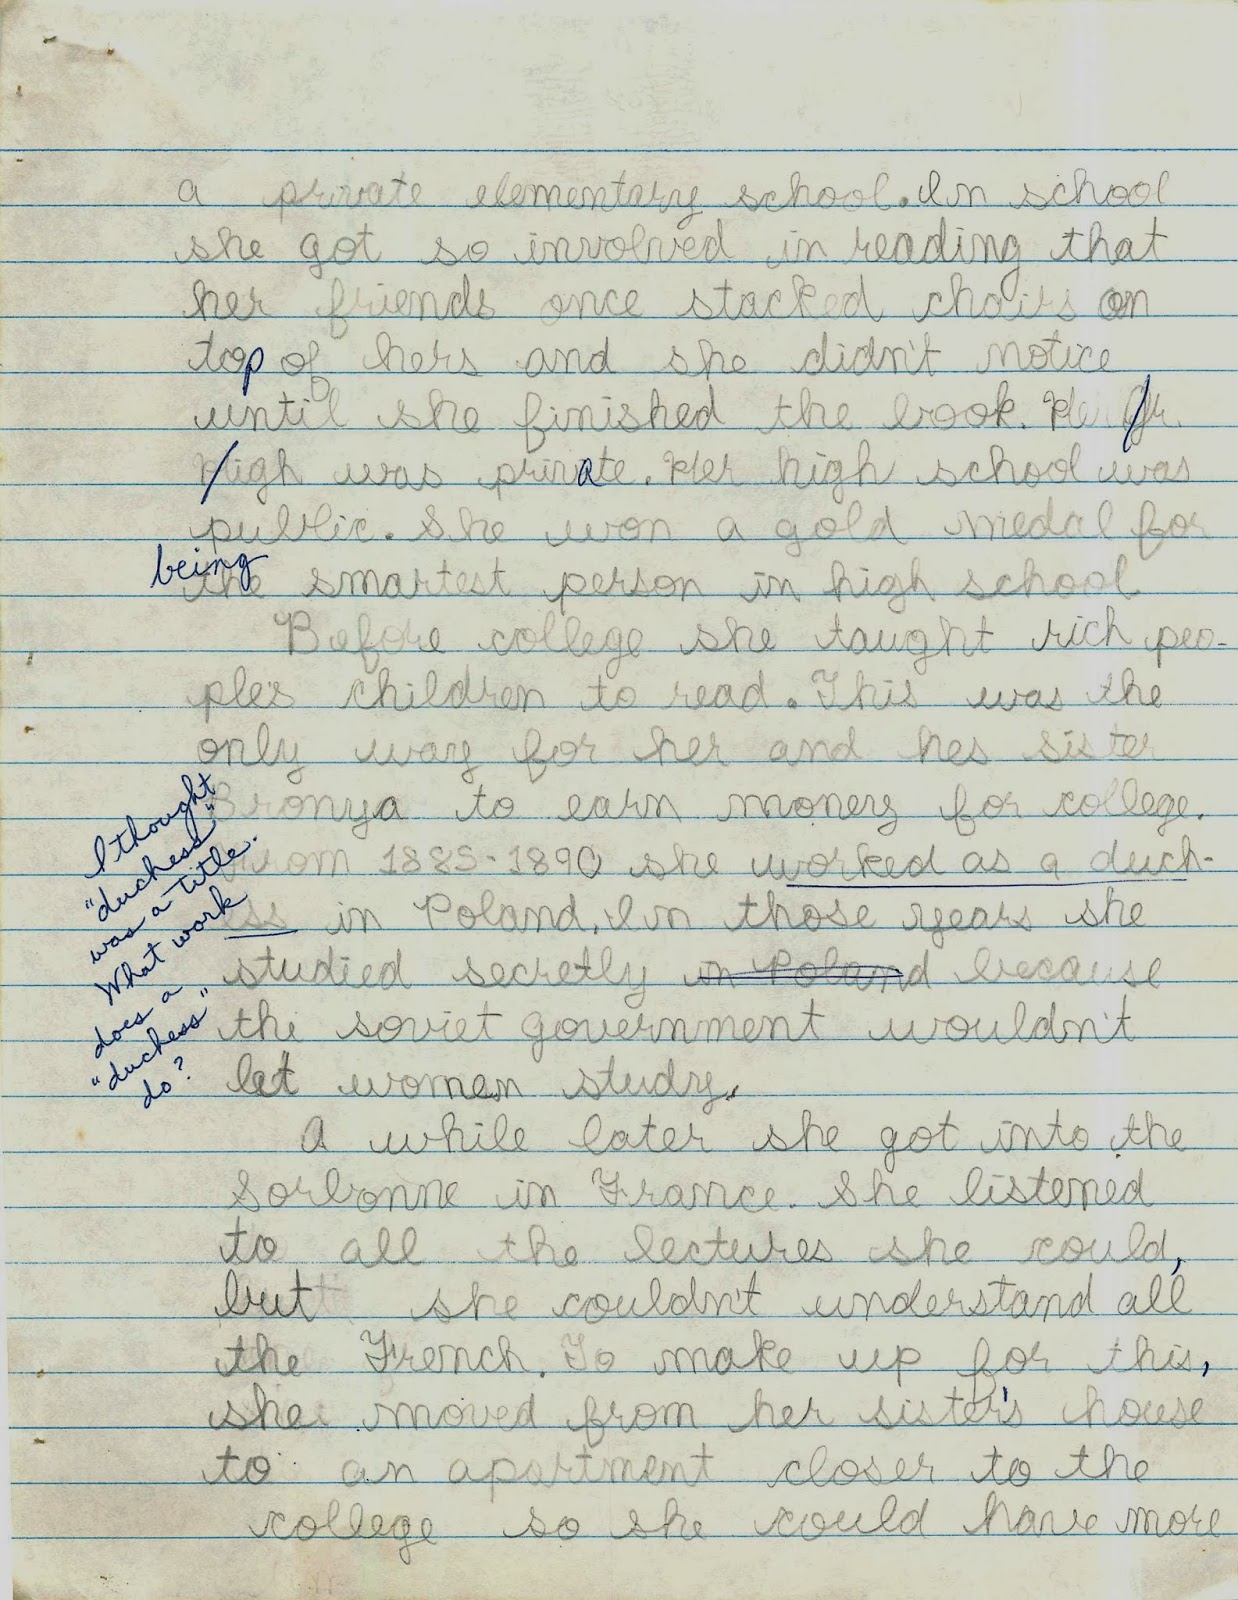 a private elementary school. In school
she got so involved in reading that
her friends once stacked chairs on
top of hers and she didn't notice
until she finished the book. Her Jr.
High was private. Her high school was
public. She won a gold medal for
being
the smartest person in high school
Before college she taught rich peo-
ple's children to read. This was the
only way for her and hes sister
Bronya to earn money for college.
From 1885-1890 she worked as a duch-
ess in Poland. In those years she
studied secretly in Poland because
the soviet government wouldn't
let women study.
I thought
"duchess"
was a title.
What work
does a
"duchess"
do?
A while later she got into the
Sorbonne in France. She listened
to all the lectures she could,
but she couldn't understand all
the French. To make up for this,
she moved from her sister's house
to an apartment closer to the
college so she could have more